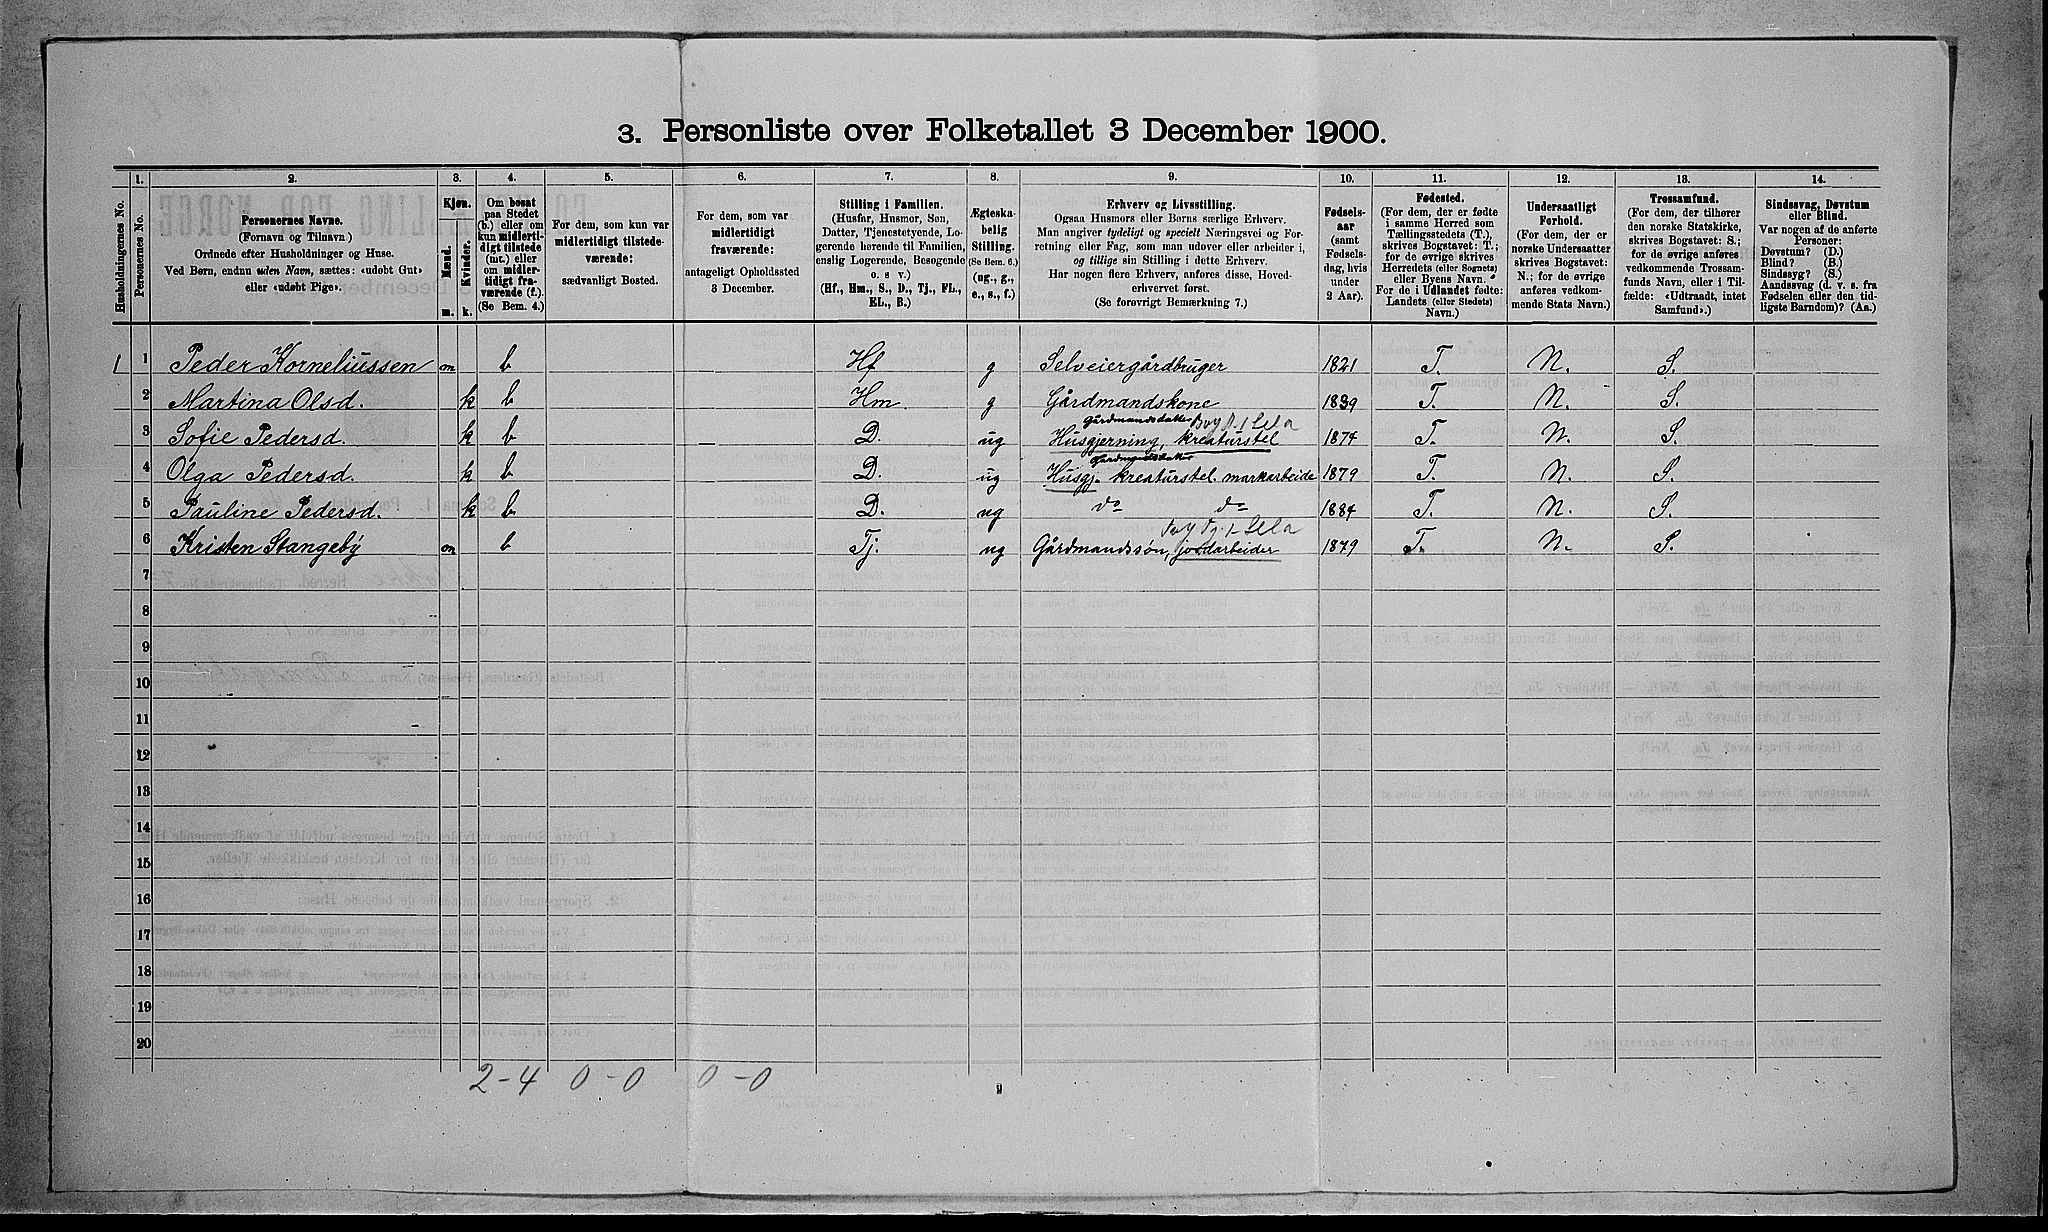 3. Personliste over Folketallet 3 December 1900.
1. 2. 3. 4. 5. 6. 7. 8. 9. 10. 11. 12. 13. 14.
Husholdningernes No.
Personernes No.
Personernes Navne.
(Fornavn og Tilnavn.)
Ordnede efter Husholdninger og Huse.
Ved Børn, endnu uden Navn, sættes: «udøbt Gut»
eller «udøbt Pige».
Kjøn.
Mænd. Kvinder.
m. k.
Om bosat
paa Stedet
(b.) eller om
kun midlerti-
digt tilstede
(mt.) eller
om midler-
tidigt fra-
værende (f.).
(Se Bem. 4.)
For dem, som kun var
midlertidigt tilstede-
værende:
sædvanligt Bosted.
For dem, som var
midlertidigt
fraværende:
antageligt Opholdssted
3 December.
Stilling i Familien.
(Husfar, Husmor, Søn,
Datter, Tjenstetyende, Lo-
gerende hørende til Familien,
enslig Logerende, Besøgende
o. s v.)
(Hf., Hm., S., D., Tj., FL.,
EL., B.)
Ægteska-
belig
Stilling.
(Se Bem. 6.)
(ug., g.,
e., s., f.)
Erhverv og Livsstilling.
Ogsaa Husmors eller Børns særlige Erhverv.
Man angiver tydeligt og specielt Næringsvei og For-
retning eller Fag, som man udover eller arbeider i,
og tillige sin Stilling i dette Erhverv.
Har nogen flere Erhverv, anføres disse, Hoved-
erhvervet først.
(Se forøvrigt Bemærkning 7.)
Fødsels-
aar
(samt
Fødsels-
dag, hvis
under
2 Aar).
Fødested.
(For dem, der er fødte
i samme Herred som
Tællingsstedets (T.),
skrives Bogstavet: T.;
for de øvrige skrives
Herredets (eller Sognets)
eller Byens Navn.
For de i Udlandet fødte:
Landets (eller Stedets)
Navn.)
Undersaatligt
Forhold.
(For dem, der er
norske Undersaatter
skrives Bogstavet:
N.; for de øvrige
anføres vedkom-
mende Stats Navn.)
Trossamfund.
(For dem, der tilhører
den norske Statskirke,
skrives Bogstavet: S.;
for de øvrige anføres
vedkommende Trossam-
funds Navn, eller i Til-
fælde: «Udtraadt, intet
Samfund».)
Sindssvag, Døvstum
eller Blind.
Var nogen af de anførte
Personer:
Døvstum? (D.)
Blind? (B.)
Sindssyg? (S.)
Aandssvag (d. v. s. fra
Fødselen eller den tid-
ligste Barndom)? (Aa.)
1 1 Peder Korneliussen m b Hf g Selveiergårdbruger 1821 T. N. S.
2 Martina Olsd. k b Hm. g Gårdmandskone 1839 T. N. S.
Gårdmandsdatter
3 Sofie Pedersd. k b – D. ug Husgjerning, kreaturstel 1874 T. N. S.
Gårdmandsdatter
4 Olga Pedersd. k b D. ug Husgj. kreaturstel. markarbeide 1879 T. N. S.
5 Pauline Pedersd. k b D. ug do do 1884 T. N. S.
6 Kristen Stangeby m b Tj. ug Gårdmandssøn, jordarbeider 1879 T. N. S.
7
8
9
10
11
12
13
14
15
16
17
18
19
20
2–4 0–0 0–0